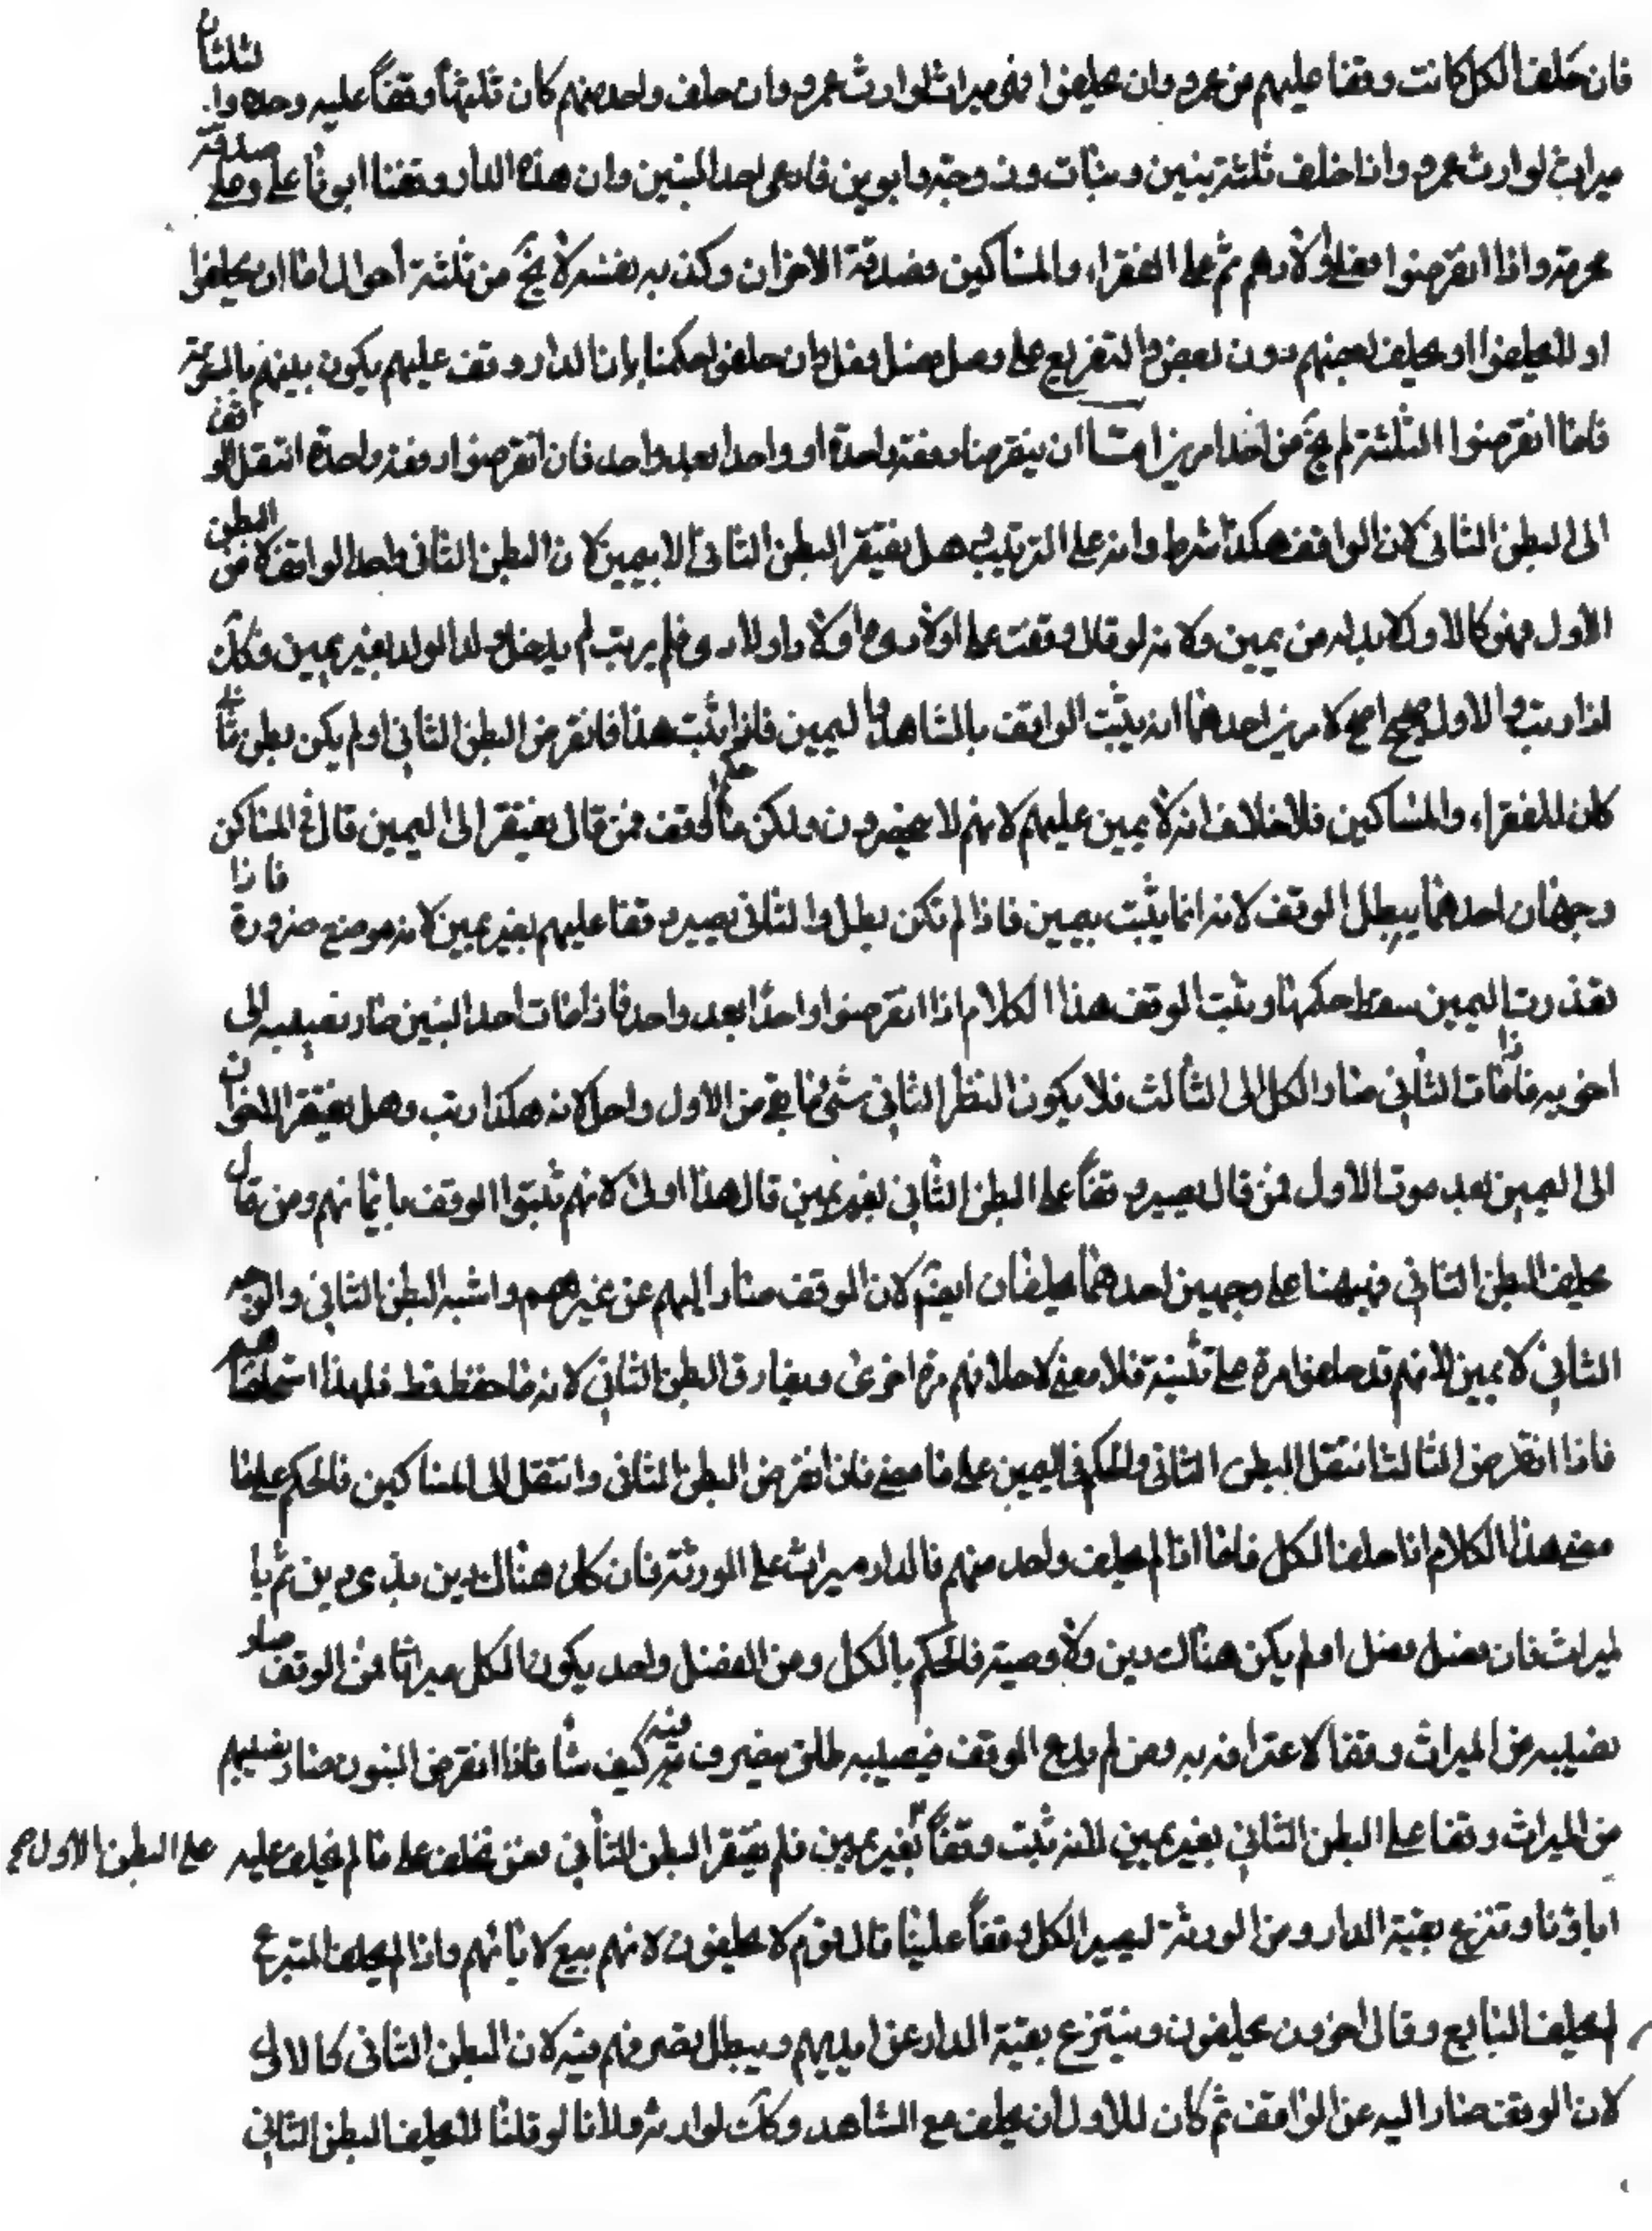 فان حلف الكل كانت وقفا عليهم من عمرو وان لم يحلفوا فهى ميراث لوارث عمرو وان حلف واحد منهم كان ثلثها وقفاً عليه وحده وا. لثلثان
ميراث لوارث عمرو واذا خلف ثلثة بنين وبنات وزوجة وابوين فادعى احد البنين وان هذه الدار وقفنا ابونا على وعلى صدقة
عمرته واذا انقرضوا فعلى اولادهم ثم على الفقراء والمساكين فصدقة الاخوان وكذبه نفسه لا يخ من ثلثة احوال اما ان يحلفوا
او لم يحلفوا او يحلف بعضهم دون بعض والتفريع على فصل فصل فان حلفوا حكمنا بان الدار وقف عليهم يكون بينهم بالسوية
فاما انقرضوا الثلثة لم يخ من احد امرين اما ان ينقرضوا دفعة واحدة او واحدا بعد واحد فان انقرضوا دفعة واحدة انتقل الوقف
الى البطن الثانى لان الواقف هكذا شرط وانه على الترتيب هل يفتقر البطن الثانى الا بيمين لان البطن الثانى ياخذ الواقف كا من البطن
الاول فهو كالاول لا بد له من يمين ولانه لو قال وقفت على اولادى واولاد اولادى فلم يرتب لم يدخل ولد الولد بغير يمين فكك
اذا رتب والاول صحيح اصح لامرين احدهما انه يثبت الواقف بالشاهد واليمين فاذا ثبت هذا فانقرض البطن الثانى او لم يكن بطن ثان
كان للفقراء والمساكين فلا خلاف انه لا يمين عليهم لانهم لا ينحصرون ولكن ما حكم الوقف فمن قال يفتقر الى اليمين قال فى المساكن
وجهان احدهما يبطل الوقف لانه انما يثبت بيمين فاذا لم تكن بطل والثانى يصير وقفا عليهم بغير يمين لانه موضع ضرورة فاذا
تعذرت اليمين سقط حكمها ويثبت الوقف هذا الكلام اذا انقرضوا واحدًا بعد واحد فاذا مات احد البنين صار نصيبه الى
اخويه فاذا مات الثانى صار الكل الى الثالث فلا يكون النظر الثانى شئ ما بقى من الاول واحد لانه هكذا رتب وهل يفتقر الاخوان
الى اليمين بعد موت الاول فمن قال يصير وقفاً على البطن الثانى بغير يمين قال هذا اولى لانهم ثبتوا الوقف بايمانهم ومن قال
يحلف البطن الثانى فيه هنا على وجهين احدهما يحلفان ايض لان الوقف صار اليهم عن غيرهم واشبه البطن الثانى والوجه
الثانى لا يمين لانهم قد حلفوا مرة على تثبيته فلا معنى لاحلافهم مرة اخرى ويفارق البطن الثانى لانه ما حفظ قط فلهذا استحلفنا هم
فاذا انقرض الثالث انتقل البطن الثانى والحكم فى اليمين على ما مضى فان انقرض البطن الثانى وانتقل الى المساكين فالحكم على ما
مضى هذا الكلام اذا حلف الكل فاما اذا لم يحلف واحد منهم فالدار ميراث على الورثة فان كان هناك دين بذى دين ثم با
لميراث فان فضل فضل او لم يكن هناك دين ولا وصية فالحكم بالكل ومن الفضل واحد يكون الكل ميراثا فمن الوقف صار
نصيبه من الميراث وقفا لاعترافه به ومن لم يدع الوقف فنصيبه طلق يتصرفون فيه كيف شا فاذا انقرض البنون صار نصيبهم
من الميراث وقفا على البطن الثانى بغير يمين لانه ثبت وقفاً بغير يمين فلم يفتقر البطن الثانى فمن يحلف على ما لم يحلف عليه على البطن الاول صح
اباؤنا وتنزع بقية الدار ومن الورثة ليصير الكل وقفاً علينا قال قوم لا يحلفون لانهم بيع لابائهم واذا لم يحلف المتبرع
لم يحلف التابع وقال اخرون يحلفون وينتزع بقية الدار عن ايديهم ويبطل تصرفهم فيه لان البطن الثانى كالاول
لان الوقف صار اليه عن الواقف ثم كان للاول ان يحلف مع الشاهد وكك لوارثه ولانا لو قلنا لا يحلف البطن الثانى